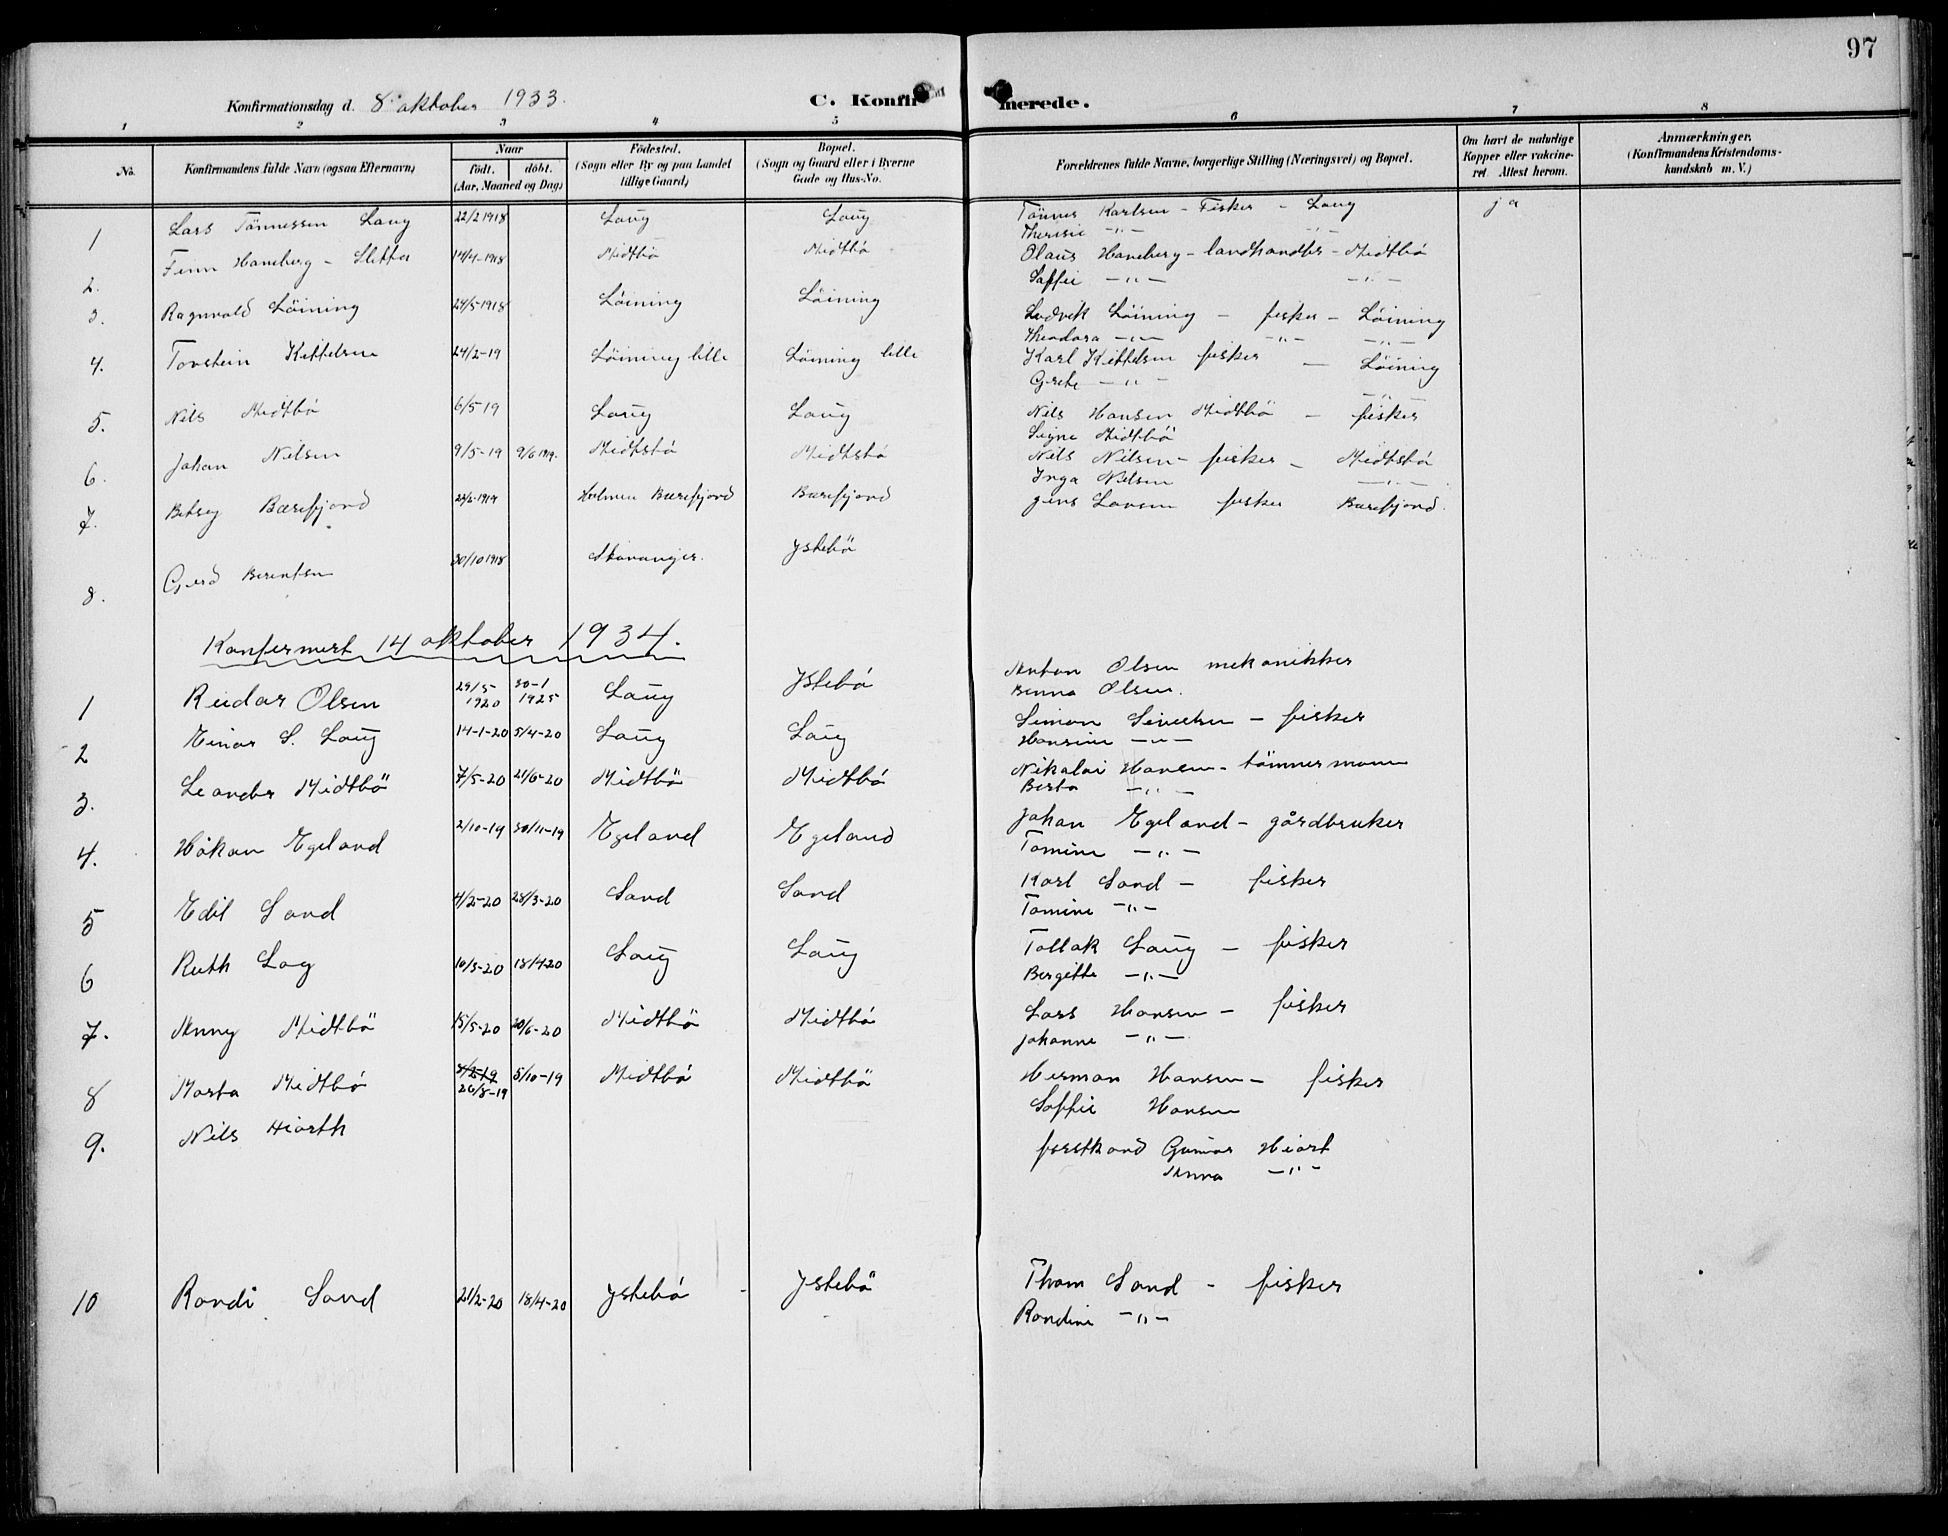 97
Konfirmationsdag d. 8 oktober 1933.
C. Konfirmerede.
1 2 3 4 5 6 7 8
No. Konfirmandens fulde Navn (ogsaa Efternavn) Naar født. døbt. (Aar, Maaned og Dag) Födested. (Sogn eller By og paa Landet tillige Gaard) Bopæl. (Sogn og Gaard eller i Byerne Gade og Hus-No. Forældrenes fulde Navne, borgerlige Stilling (Næringsvei) og Bopæl. Om havt de naturlige Kopper eller vakcineret Attest herom. Anmærkninger. (Konfirmandens Kristendomskundskab m. V.)
1 Lars Tönnessen Laug 22/2 1918 Laug Laug Tönnes Karlsen - Fisker - Laug ja
Theresie -"- -"-
2. Finn Haneberg - Sletta 14/4-1918 Midtbö Midtbö Olaus Haneberg - landhandler - Midtbö
Soffie -"- -"-
3. Ragnvald Löining 24/5-1918 Löining Löining Ludvik Löining - fisker - Löining
Theodora -"- -"- -"-
4. Torstein Kittelsen 24/2-19 Löining lille Löining lille Karl Kittelsen fisker - Löining
Grete -"- -"-
5. Nils Midtbö 6/5 19 Laug Laug Nils Hansen Midtbö - fisker
Signe Midtbö
6. Johan Nilsen 9/5-19 9/6 1919. Midtsbö Midtsbö Nils Nilsen - fisker - Midtsbö
Inga Nilsen -"-
7. Betsey Bærefjord 24/6-1919 Holmen Bærefjord Bærefjord Jens Larsen fisker Bærefjord.
8. Gerd Berentsen 30/10 1918 Stavanger. Ystebö
Konfermert 14 oktober 1934.
1 Reidar Olsen 29/5-1920 30-1 1925 Laug Ystebö Anton Olsen mekanikker
Benna Olsen.
2 Einar S. Laug 14-1-20 5/4-20 Laug Laug Simon Sivertsen - fisker
Hansine -"-
3. Leander Midtbö 7/5-20 21/6-20 Midtbö Midtbö Nikolai Hansen - tömmermann
Berta -"-
4. Håkon Egeland 2/10-19 30/11-19 Egeland Egeland Johan Egeland - gårdbruker
Tomine -"-
5 Edit Sand 4/2-20 28/3-20 Sand Sand Karl Sand - fisker
Tomine -"-
6 Ruth Log 10/3-20 18/4-20 Laug Laug Tollak Laug - fisker
Bergitte -"-
7. Anny Midtbö 15/5-20 20/6-20 Midtbö Midtbö Lars Hansen - fisker
Johanne -"-
8 Marta Midtbö 26/8-19 5/10-19 Midtbö Midtbö Herman Hansen - fisker
Soffie Hansen
9. Nils Hiorth forstkand Gunnar Hiort
Anna -"-
10 Randi Sand 21/2-20 18/4-20 Ystebö - Ystebö Thom Sand - fisker
Randine -"-